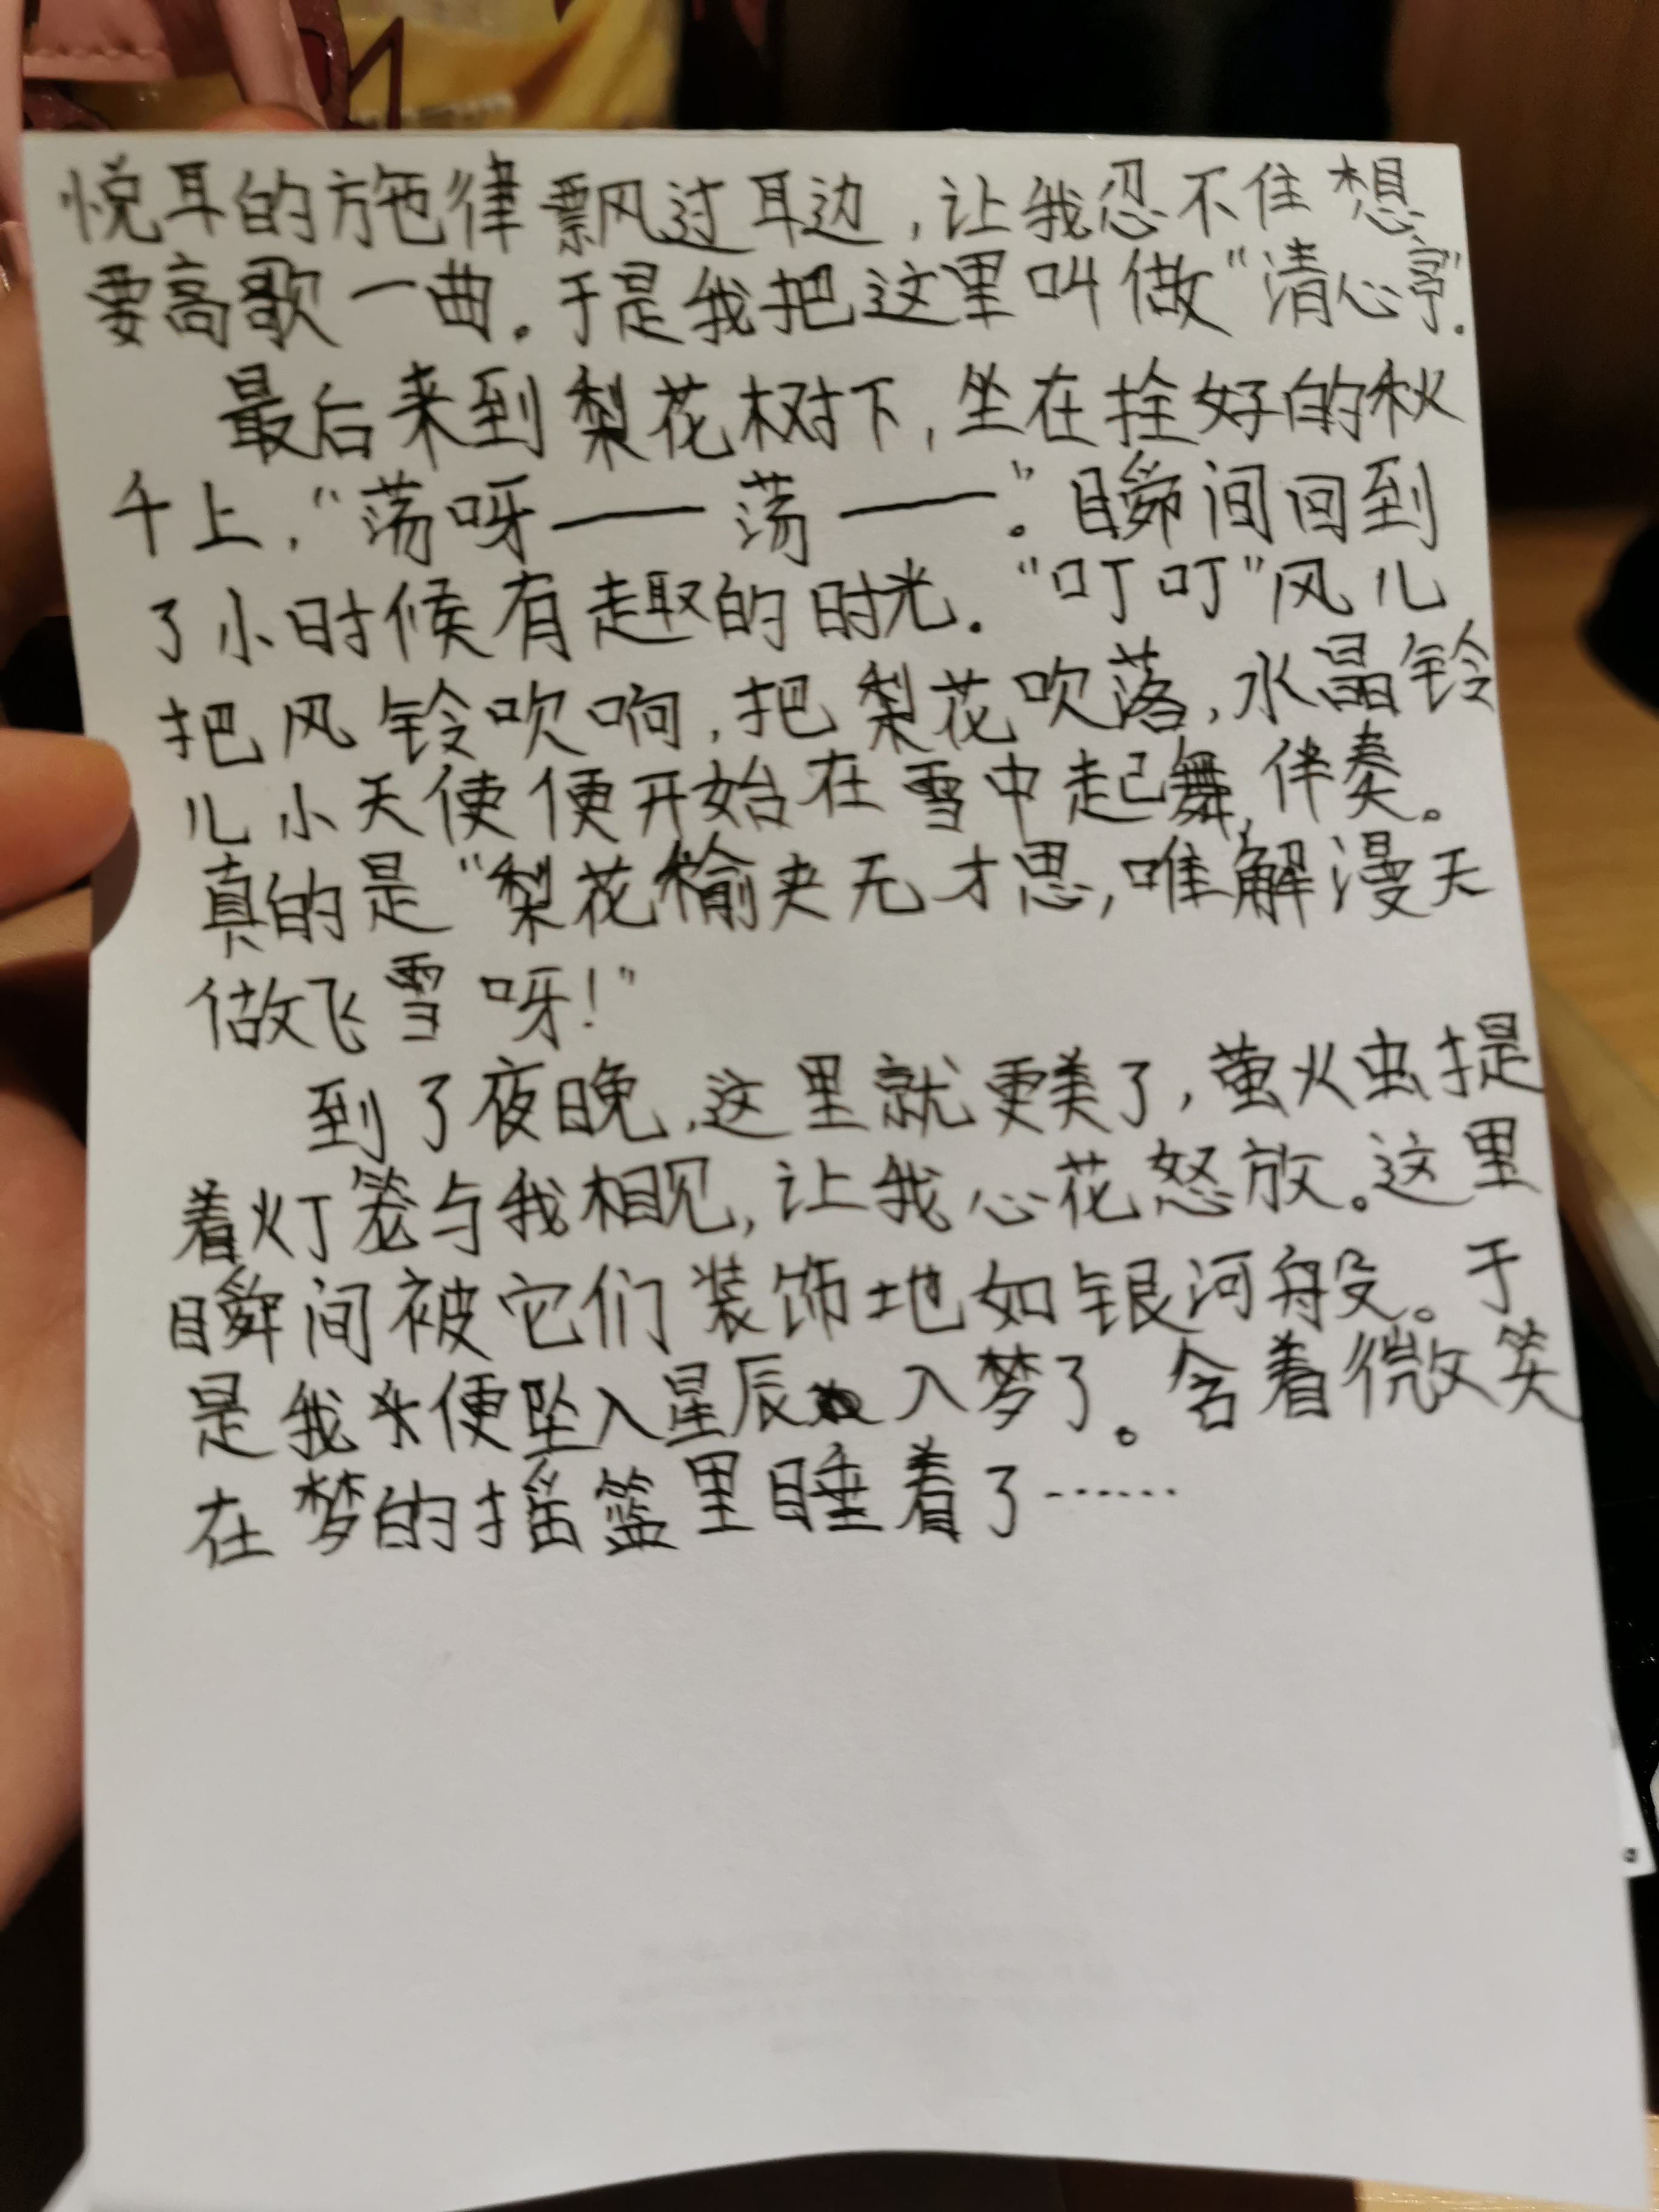 悦耳的旋律飘过耳边,让我忍不住想
要高歌一曲。于是我把这里叫做“清心亭”。
最后来到梨花树下,坐在拴好的秋
千上,“荡呀——荡——”。瞬间回到
了小时候有趣的时光。“叮叮”风儿
把风铃吹响,把梨花吹落,水晶铃
儿小天使便开始在雪中起舞,伴奏。
真的是“梨花榆夹无才思,唯解漫天
做飞雪呀!”
到了夜晚,这里就更美了,萤火虫提
着灯笼与我相见,让我心花怒放。这里
瞬间被它们装饰地如银河般。于
是我便坠入星辰入梦了。含着微笑
在梦的摇篮里睡着了……